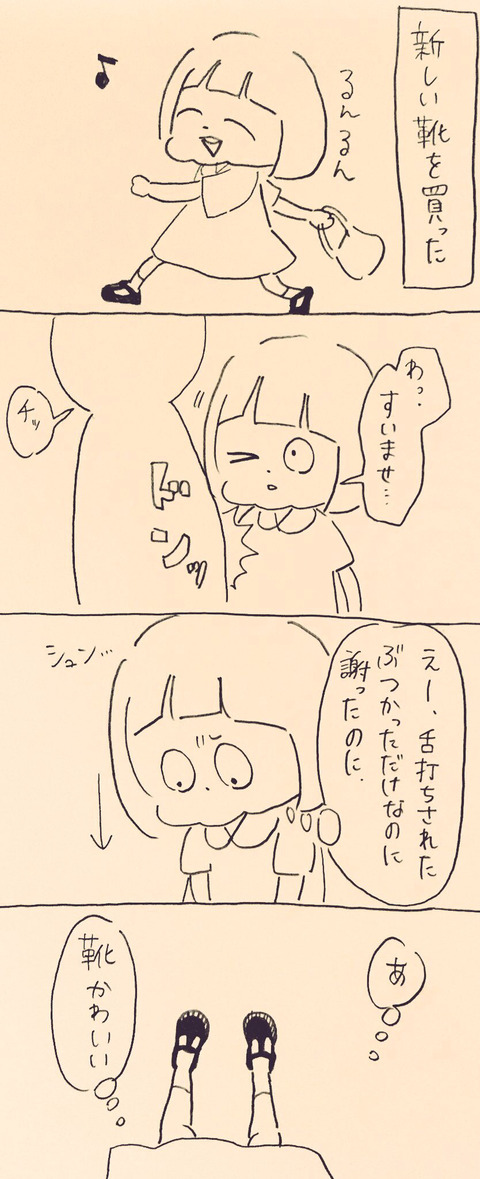 新しい靴を買った
るんるん
♪
わっ.
すいませ…
ドンッ
チッ
えー、舌打ちされた
ぶつかっただけなのに
謝ったのに.
シュン…
あ
靴かわいい